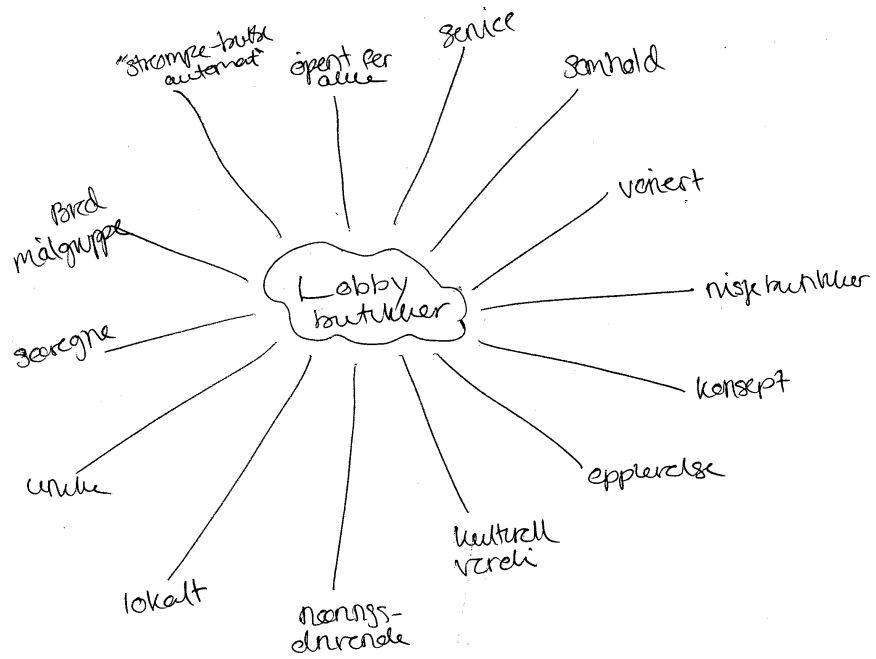 "strømpe-bukse
automat"
åpent for
alle
service
samhold
variert
nisjebutikker
konsept
opplevelse
kulturell
verdi
nærings-
drivende
lokalt
unike
særegne
Bred
målgruppe
Lobby
butikker